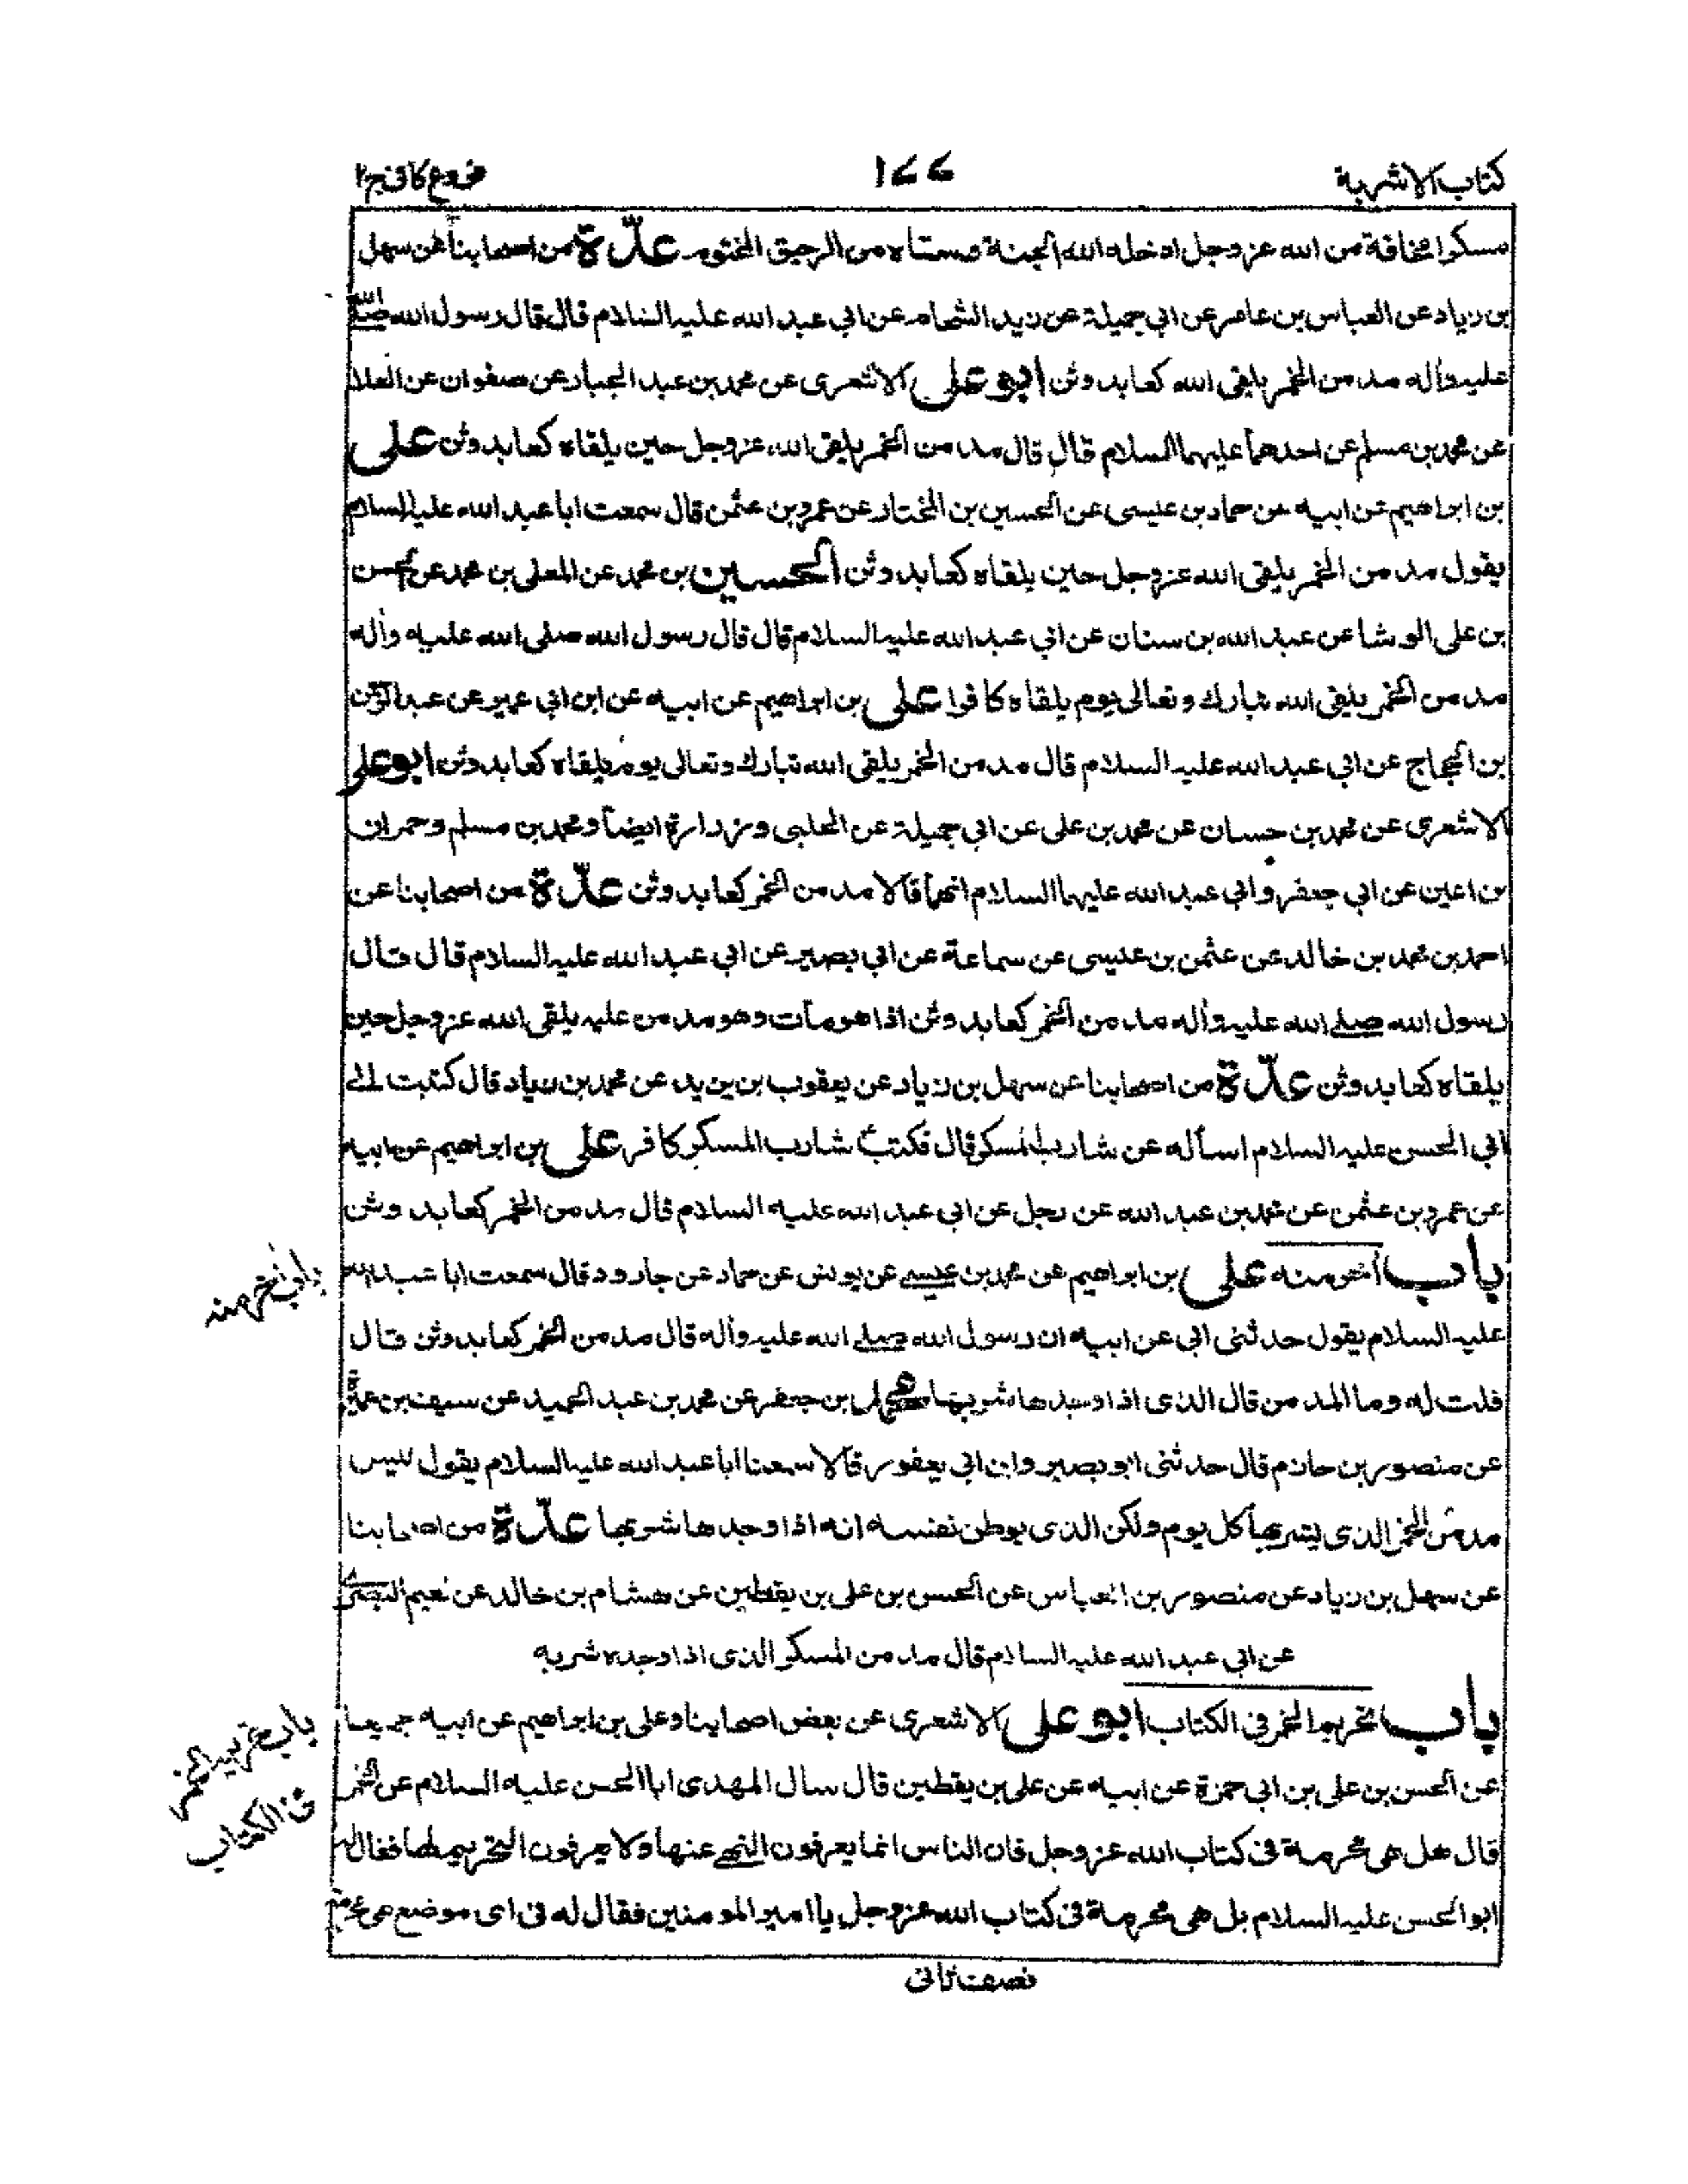 كتاب الاشربة
۱۷۷
فروع كافى ج۲
مسكرا مخافة من الله عز وجل ادخله الله الجنة وسقاه من الرحيق المختوم عدّة من اصحابنا عن سهل
بن زياد عن العباس بن عامر عن ابي جميلة عن زيد الشحام عن ابي عبد الله عليه السلام قال قال رسول الله صلى الله
عليه وآله مدمن الخمر يلقى الله كعابد وثن ابو على الاشعرى عن محمد بن عبد الجبار عن صفوان عن العلا
عن محمد بن مسلم عن احدهما عليهما السلام قال قال مدمن الخمر يلقى الله عز وجل حين يلقاه كعابد وثن على
بن ابراهيم عن ابيه عن حماد بن عيسى عن الحسين بن المختار عن عمرو بن عثمن قال سمعت ابا عبد الله عليه السلام
يقول مدمن الخمر يلقى الله عز وجل حين يلقاه كعابد وثن الحسين بن محمد عن المعلى بن محمد عن الحسن
بن على الوشا عن عبد الله بن سنان عن ابي عبد الله عليه السلام قال قال رسول الله صلى الله عليه وآله
مدمن الخمر يلقى الله تبارك وتعالى يوم يلقاه كافرا على بن ابراهيم عن ابيه عن ابن ابي عمير عن عبد الرحمن
بن الحجاج عن ابي عبد الله عليه السلام قال مدمن الخمر يلقى الله تبارك وتعالى يوم يلقاه كعابد وثن ابو على
الاشعرى عن محمد بن حسان عن محمد بن على عن ابي جميلة عن الحلبى وزرارة ايضا ومحمد بن مسلم وحمران
بن اعين عن ابي جعفر وابي عبد الله عليهما السلام انهما قالا مدمن الخمر كعابد وثن عدّة من اصحابنا عن
احمد بن محمد بن خالد عن عثمن بن عيسى عن سماعة عن ابي بصير عن ابي عبد الله عليه السلام قال قال
رسول الله صلى الله عليه وآله مدمن الخمر كعابد وثن اذا هو مات وهو مدمن عليه يلقى الله عز وجل حين
يلقاه كعابد وثن عدّة من اصحابنا عن سهل بن زياد عن يعقوب بن يزيد عن محمد بن زياد قال كتبت الى
ابي الحسن عليه السلام اسأله عن شارب المسكر قال فكتب شارب المسكر كافر على بن ابراهيم عن ابيه
عن عمرو بن عثمن عن محمد بن عبد الله عن رجل عن ابي عبد الله عليه السلام قال مدمن الخمر كعابد وثن
باب اخر منه على بن ابراهيم عن محمد بن عيسى عن يونس عن حماد عن جارود قال سمعت ابا عبد الله
باب اخر منه
عليه السلام يقول حدثنى ابى عن ابيه ان رسول الله صلى الله عليه وآله قال مدمن الخمر كعابد وثن قال
قلت له وما المدمن قال الذى اذا وجدها شربها محمد بن جعفر عن محمد بن عبد الحميد عن سيف بن عميرة
عن منصور بن حازم قال حدثنى ابو بصير وابن ابي يعفور قالا سمعنا ابا عبد الله عليه السلام يقول ليس
مدمن الخمر الذى يشربها كل يوم ولكن الذى يوطن نفسه انه اذا وجدها شربها عدّة من اصحابنا
عن سهل بن زياد عن منصور بن العباس عن الحسن بن على بن يقطين عن هشام بن خالد عن نعيم البصرى
عن ابي عبد الله عليه السلام قال مدمن المسكر الذى اذا وجده شربه
باب تحريم الخمر فى الكتاب ابو على الاشعرى عن بعض اصحابنا وعلى بن ابراهيم عن ابيه جميعا
باب تحريم الخمر
فى الكتاب
عن الحسن بن على بن ابي حمزة عن ابيه عن على بن يقطين قال سال المهدى ابا الحسن عليه السلام عن الخمر
قال هل هى محرمة فى كتاب الله عز وجل فان الناس انما يعرفون النهى عنها ولا يعرفون التحريم لها فقال له
ابو الحسن عليه السلام بل هى محرمة فى كتاب الله عز وجل يا امير المومنين فقال له فى اى موضع هى محرمة
نصف ثانى